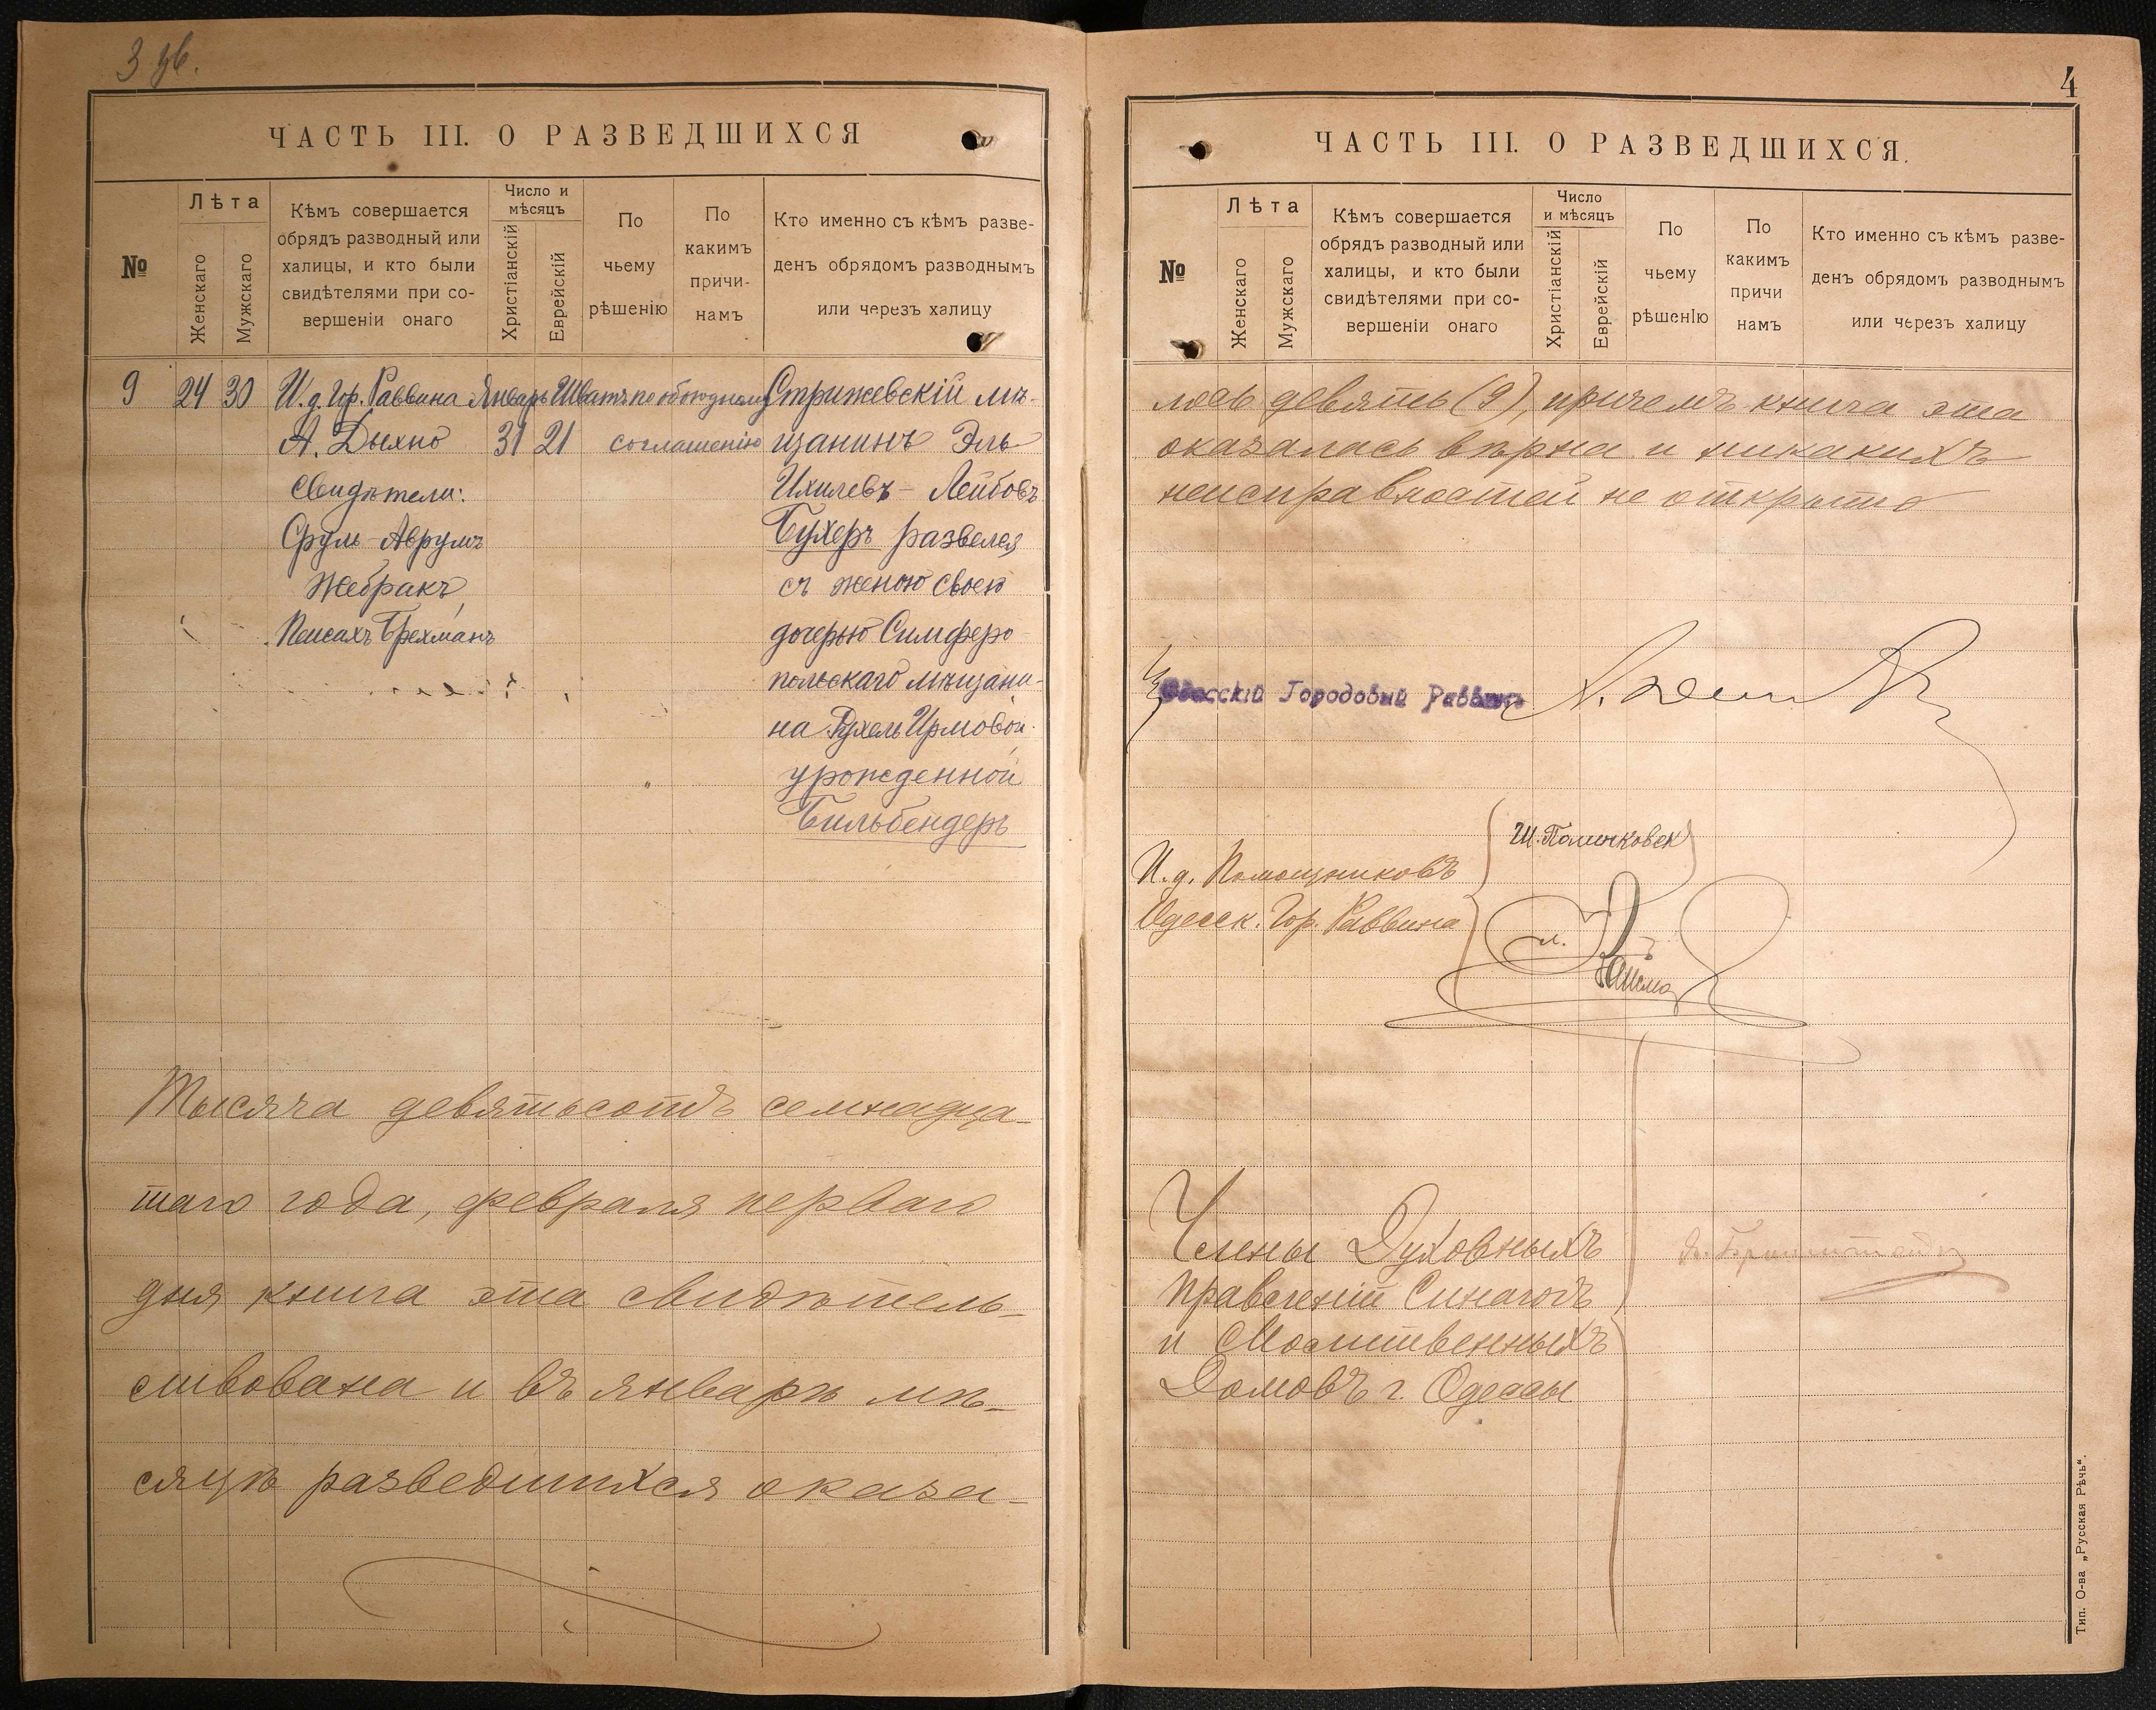 3 ЧАСТЬ III. О РАЗВЕДШИХСЯ
№
Лѣта
Женскаго
Мужскаго
Кѣмъ совершается
обрядъ разводный или
халицы, и кто были
свидѣтелями при со-
вершеніи онаго
Число и
мѣсяцъ
Христіанскій
Еврейскій
По
чьему
рѣшенію
По
какимъ
причи-
намъ
Кто именно съ кѣмъ разве-
денъ обрядомъ разводнымъ
или черезъ халицу
9 24 30 И.д. Гор. Раввина Январь Шватъ по обоюдному Стрижевскій мѣ-
А. Дыхно 31 21 соглашенію щанинъ Эль
Свидѣтели: Ихилевъ-Лейбовъ
Сруль-Аврумъ Бухеръ развелся
Жебракъ, съ женою своею
Пейсахъ Брехманъ дочерью Симферо
польскаго мѣщани-
на Рухель Ирмовой
урожденной
Бильбендеръ
Тысяча девятьсотъ семнадца-
таго года, февраля перваго
дня книга эта свидѣтель-
ствована и въ январѣ мѣ-
сяцѣ разведшихся оказа-
4
ЧАСТЬ III. О РАЗВЕДШИХСЯ.
№
Лѣта
Женскаго
Мужскаго
Кѣмъ совершается
обрядъ разводный или
халицы, и кто были
свидѣтелями при со-
вершеніи онаго
Число
и мѣсяцъ
Христіанскій
Еврейскій
По
чьему
рѣшенІю
По
какимъ
причи
намъ
Кто именно съ кѣмъ разве-
денъ обрядомъ разводнымъ
или черезъ халицу
лось девять (9), причемъ книга эта
оказалась вѣрна и никакихъ
неисправностей не открыто
Одесскій Городовый Раввинъ
И.д. Помощниковъ
Одесск. Гор. Раввина
Члены Духовныхъ
Правленій Синагогъ
и Молитвенныхъ
Домовъ г. Одессы
Тип. О-ва „Русская Рѣчь“.